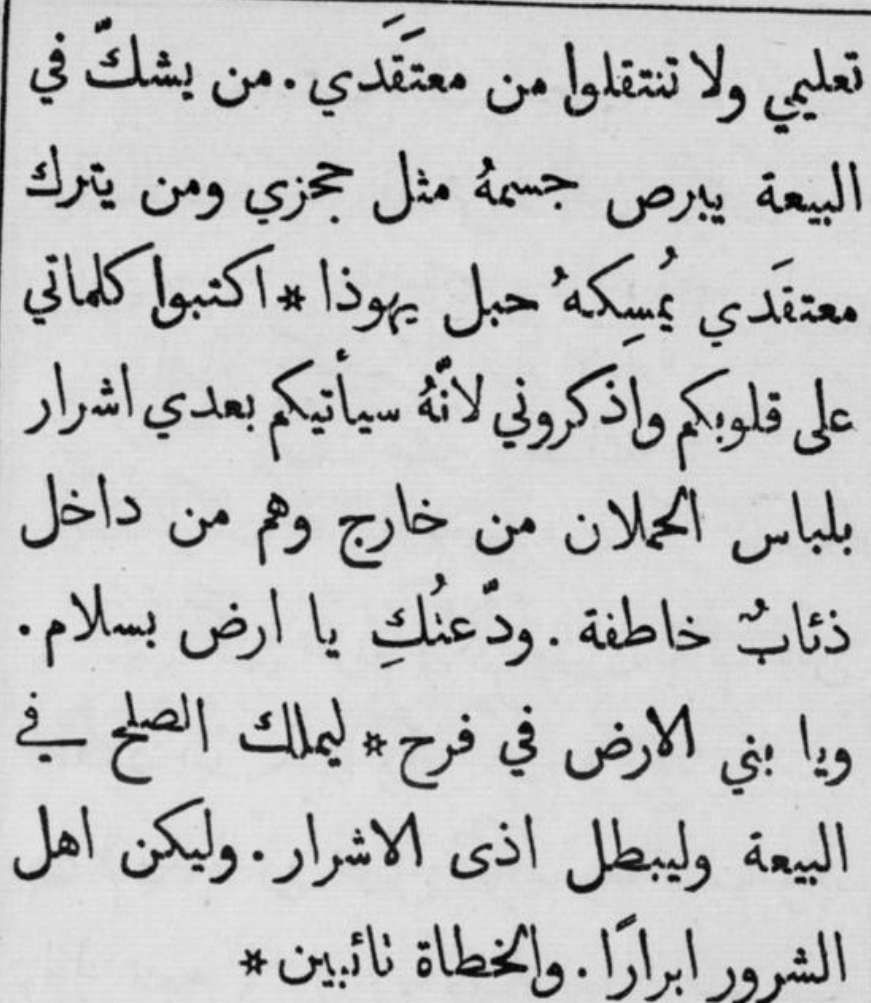 تعليمي ولا تنتقلوا من معتقَدي. من يشكّ في
البيعة يبرص جسمهُ مثل جحزي ومن يترك
معتقَدي يُمسِكهُ حبل يهوذا * اكتبوا كلماتي
على قلوبكم واذكروني لانَّهُ سيأتيكم بعدي اشرار
بلباس الحملان من خارج وهم من داخل
ذئابٌ خاطفة. ودَّعتُكِ يا ارض بسلام.
ويا بني الارض في فرح * ليملك الصلح في
البيعة وليبطل اذى الاشرار. وليكن اهل
الشرور ابرارًا. والخطاة تائبين *